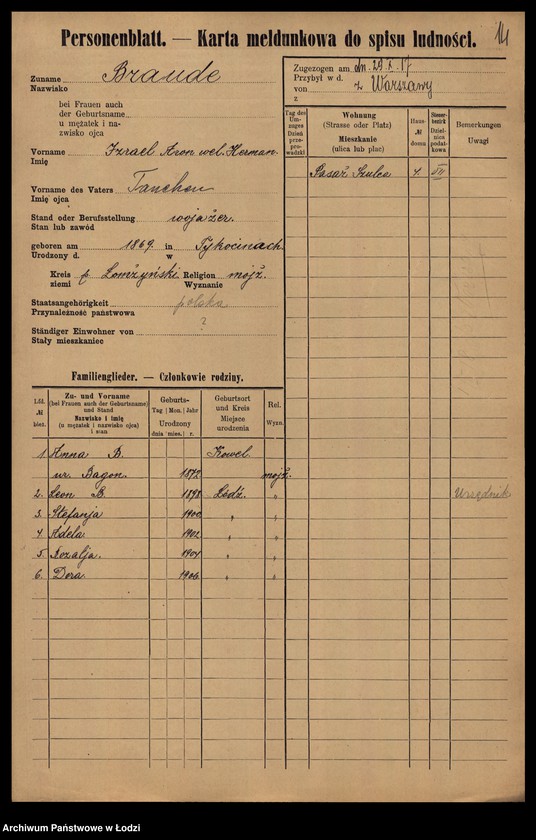 14
Personenblatt. — Karta meldunkowa do spisu ludności.
Zuname Braude
Nazwisko
bei Frauen auch
der Geburtsname
u mężatek i na-
zwisko ojca
Vorname Izrael Aron vel. Herman
Imię
Vorname des Vaters Tanchen
Imię ojca
Stand oder Berufsstellung wojażer.
Stan lub zawód
geboren am 1869. in Tykocinach
Urodzony d. w
Kreis p. Łomżyński Religion mojż.
ziemi Wyznanie
Staatsangehörigkeit polska
Przynależność państwowa
Ständiger Einwohner von ?
Stały mieszkaniec
Zugezogen am dn. 29.X.17
Przybył w d.
von z Warszawy
z
Tag des Um-zuges Dzień prze-prowadzki
Wohnung (Strasse oder Platz) Mieszkanie (ulica lub plac)
Haus- № domu
Steuer-bezirk Dziel-nica podat-kowa
Bemerkungen Uwagi
Pasaż Szulca 4. VII
Familienglieder. — Członkowie rodziny.
Lfd. № bież.
Zu- und Vorname (bei Frauen auch der Geburtsname) und Stand Nazwisko i imię (u mężatek i nazwisko ojca) i stan
Geburts- Tag Mon. Jahr Urodzony dnia mies. r.
Geburtsort und Kreis Miejsce urodzenia
Rel. Wyzn.
1. Anna B. Kowel
ur. Bagon. 1872 mojż.
2. Leon B. 1898 Łódź. " Urzędnik
3. Stefanja 1900 " "
4 Adela 1902 " "
5 Rozalja. 1904 " "
6. Dora 1906 " "
Archiwum Państwowe w Łodzi